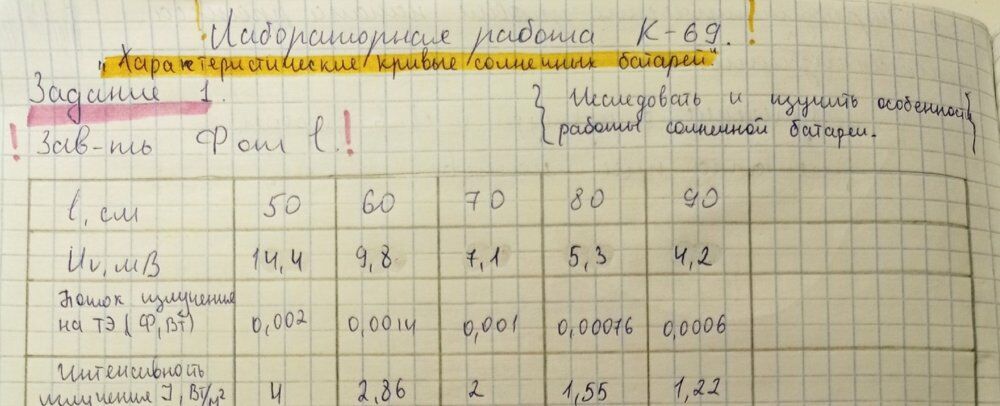 ! Лабораторная работа К-69. !
"Характеристические кривые солнечных батарей."
Задание 1.
{ Исследовать и изучить особенности }
{ работы солнечной батареи. }
! Зав-ть Ф от l. !
l, см 50 60 70 80 90
Uν, мВ 14,4 9,8 7,1 5,3 4,2
Поток излучения
на ТЭ ( Ф, Вт) 0,002 0,0014 0,001 0,00076 0,0006
Интенсивность
излучения J, Вт/м² 4 2,86 2 1,55 1,22